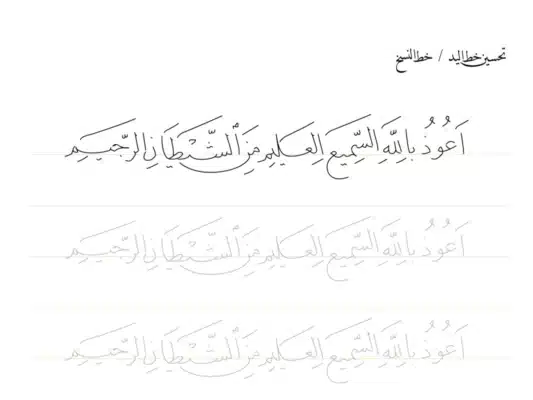 تحسين خط اليد / خط النسخ
اَعُوذُ بِاللَّهِ السَّمِيعِ العَلِيمِ مِنَ ٱلشَّيْطَانِ الرَّجِيمِ
اَعُوذُ بِاللَّهِ السَّمِيعِ العَلِيمِ مِنَ ٱلشَّيْطَانِ الرَّجِيمِ
اَعُوذُ بِاللَّهِ السَّمِيعِ العَلِيمِ مِنَ ٱلشَّيْطَانِ الرَّجِيمِ